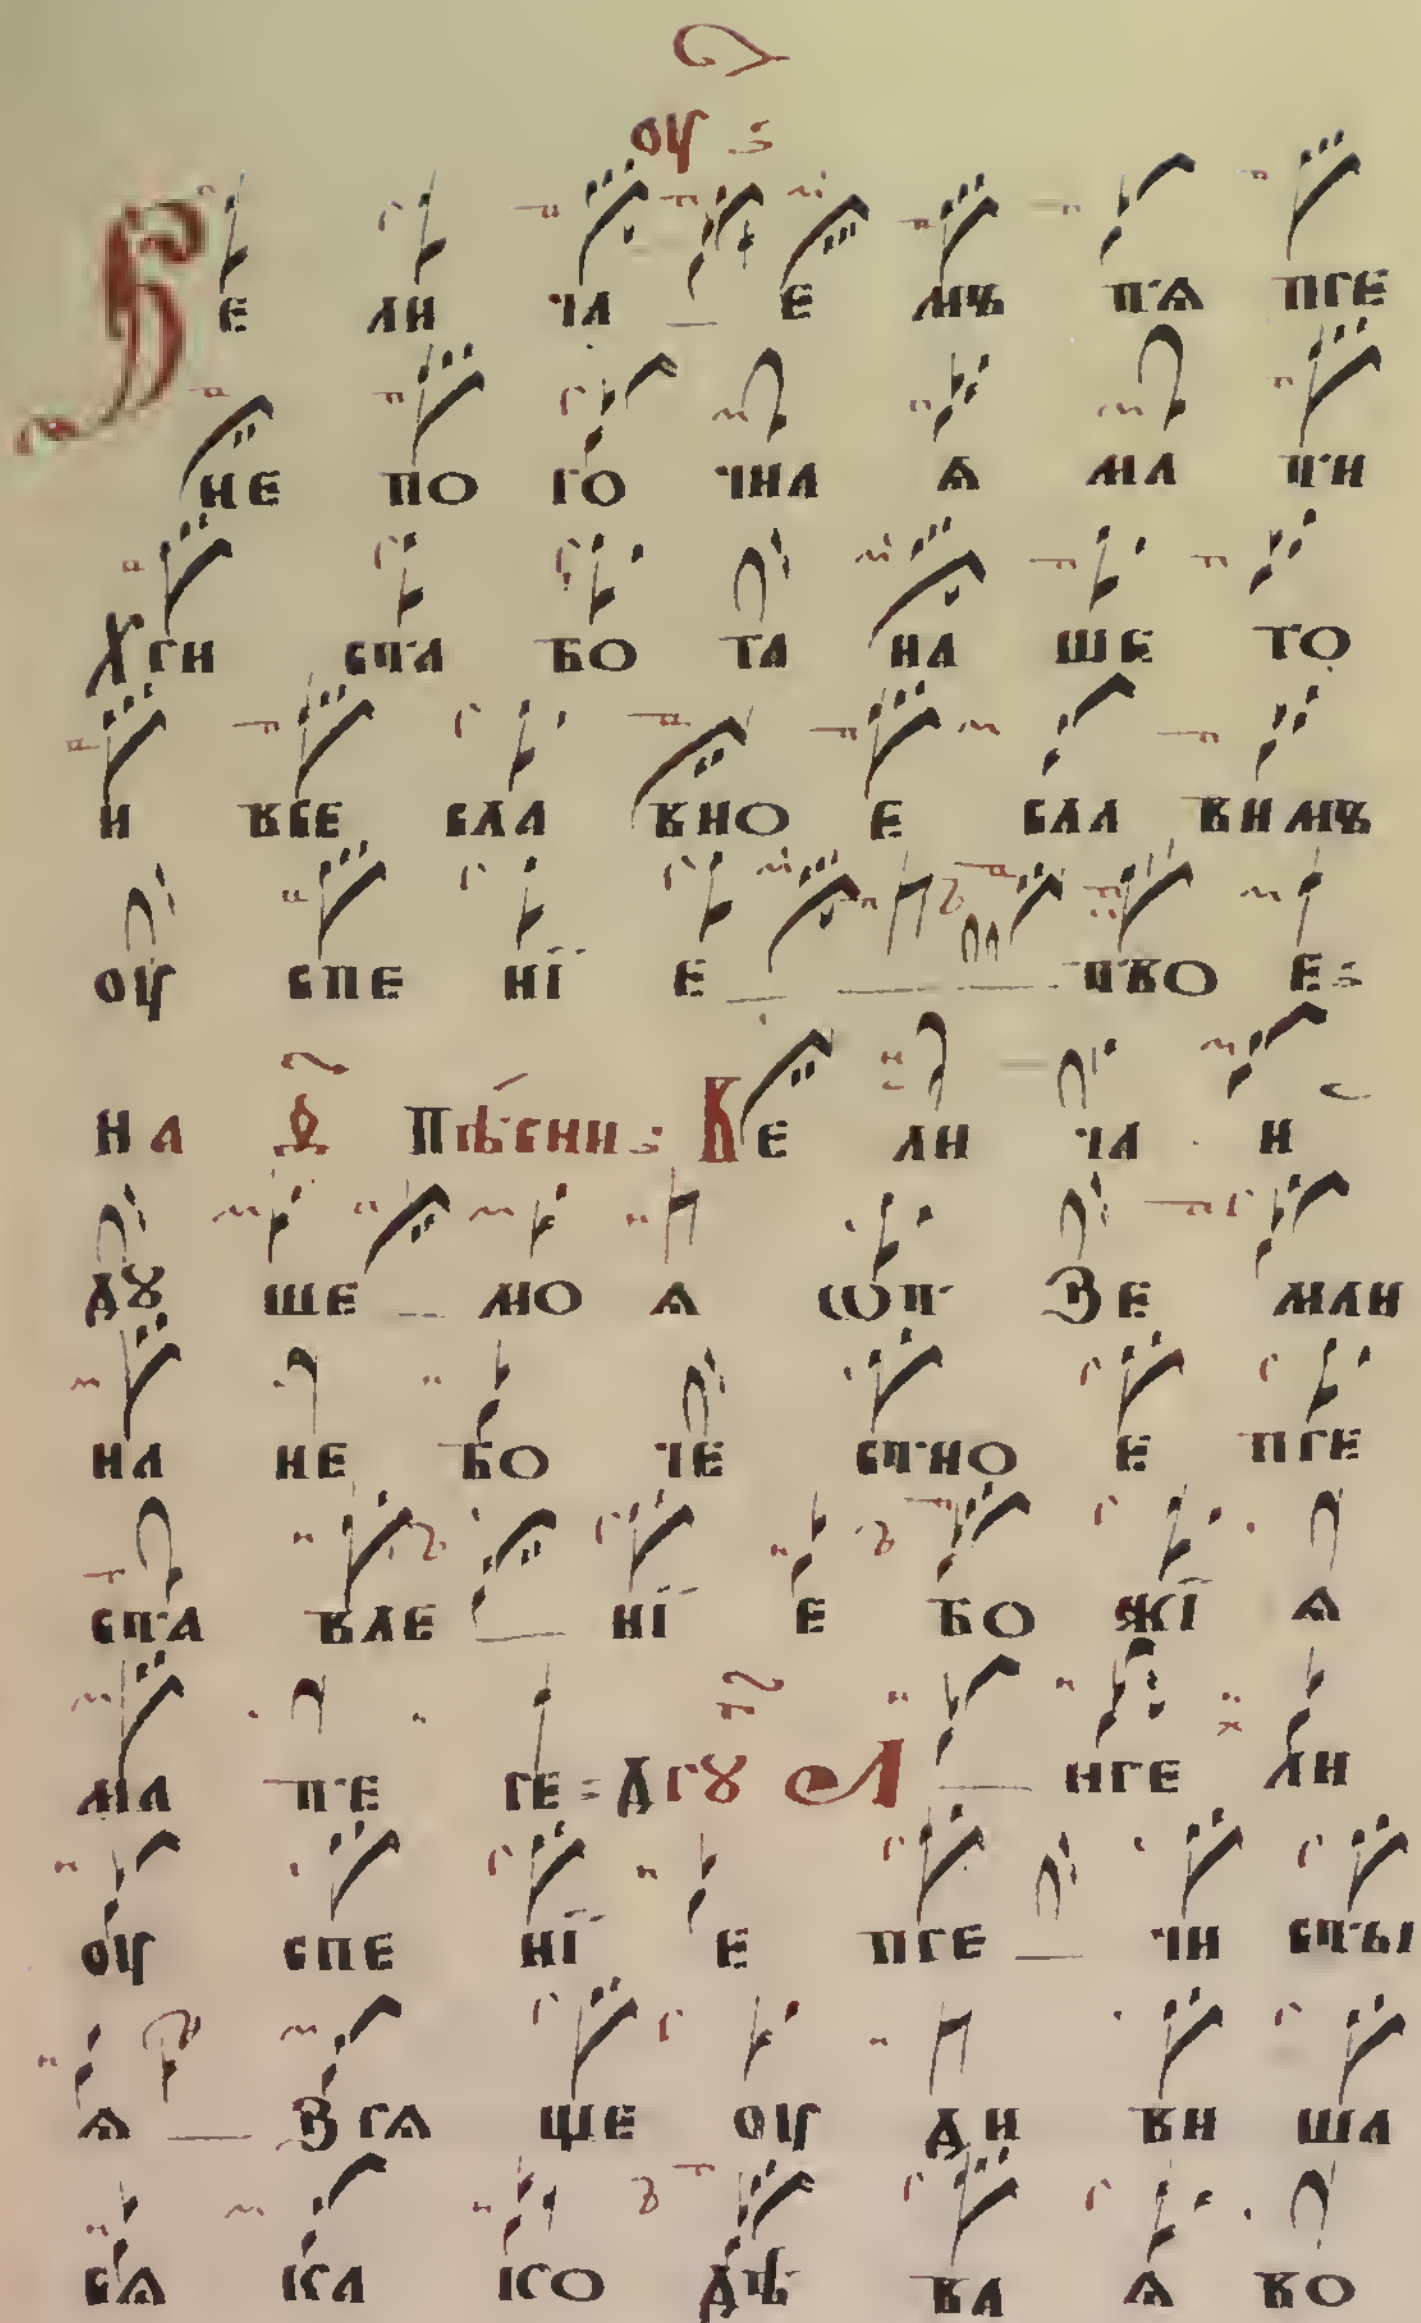 оу ѕ
Ве ли ча _ е мъ тѧ пре
не по ро чна ѧ ма ти
хри ста бо га на ше го
и все сла вно е сла вимъ
оу спе нї е _ _ _ тво е:
на ѳ пѣсни: Ве ли ча и
дꙋ ше _ мо ѧ ѿт зе мли
на не бо че стно е пре
ста вле _ нї е бо жї ѧ
ма те ре: дрꙋ а _ нге ли
оу спе нї е пре _ чи сты
ѧ _ зрѧ ще оу ди ви ша
сѧ ка ко дѣ ва ѧ ко